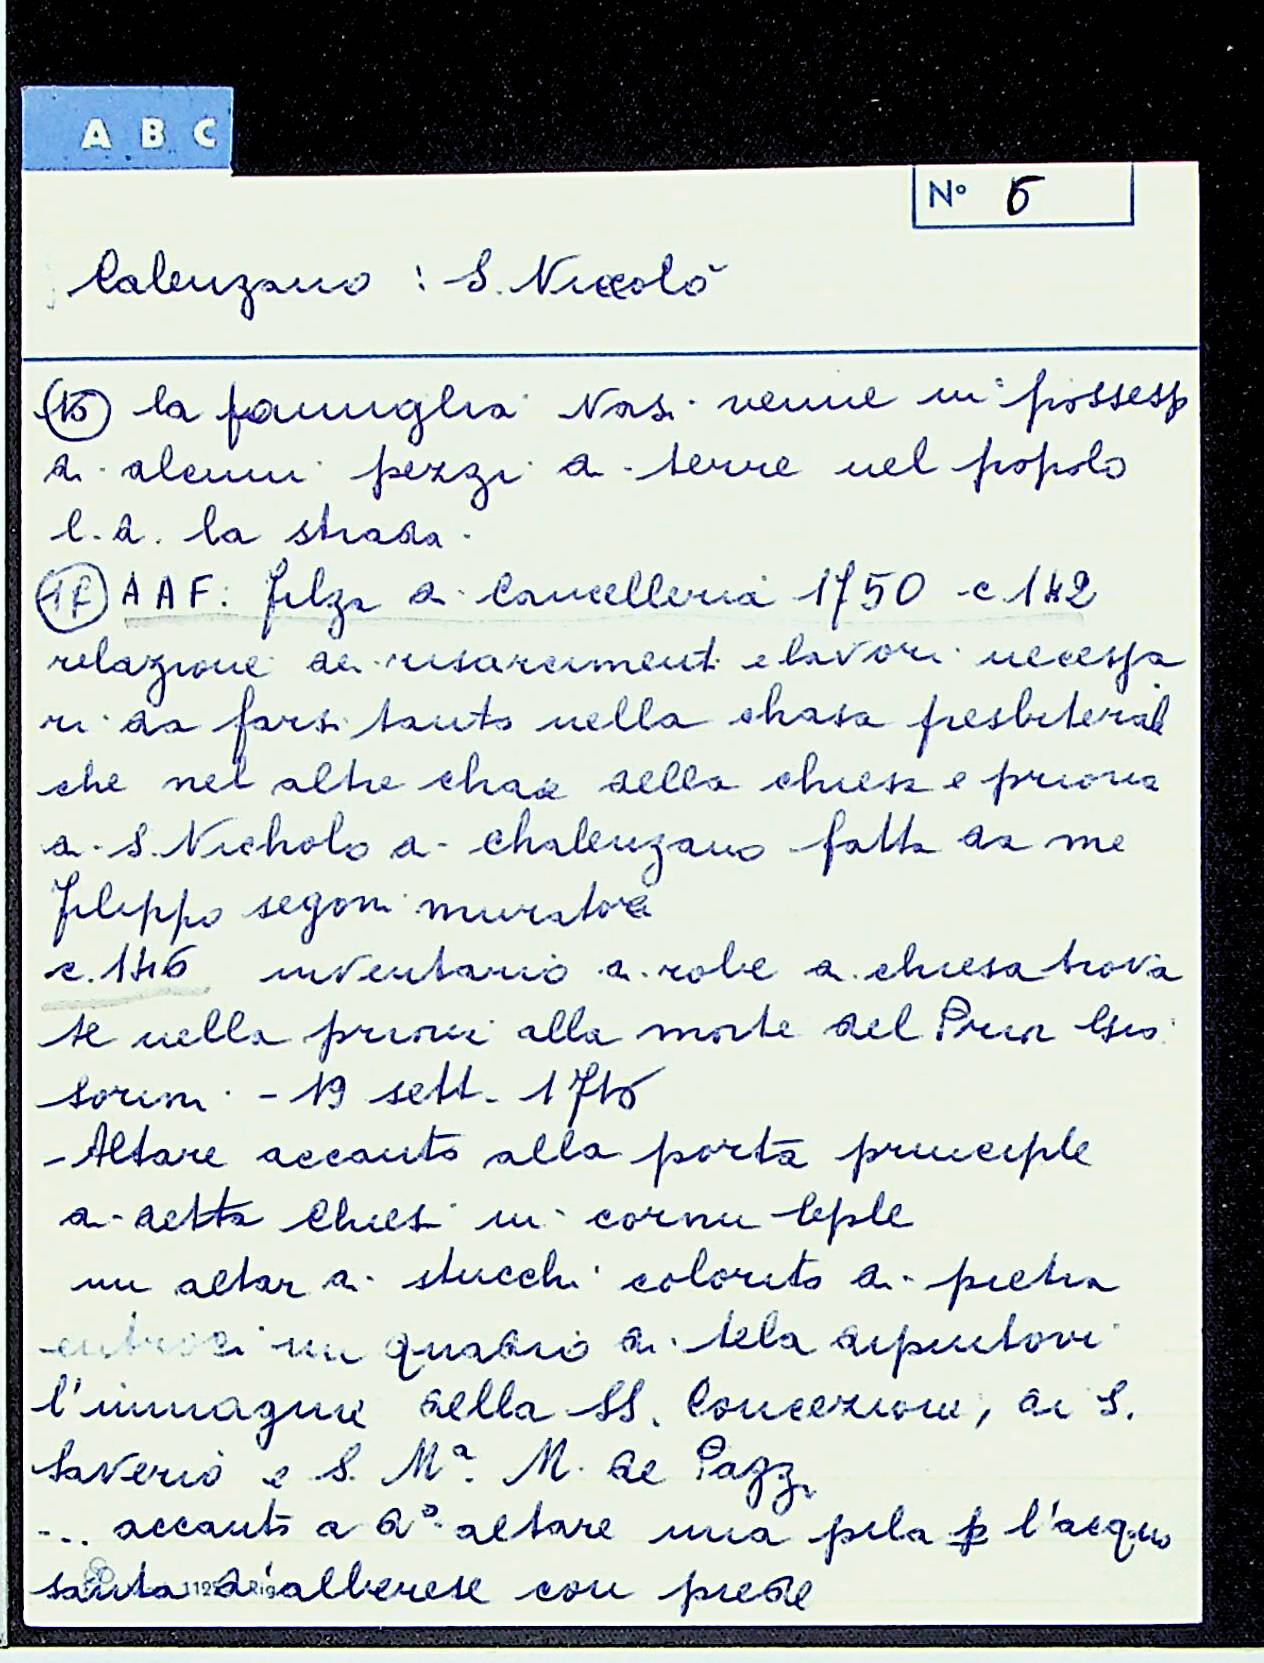 A B C
N° 5
Calenzano : S. Niccolò
la famiglia Nasi venne in possesso
di alcuni pezzi di terre nel popolo
l.d. la strada.
17 A A F: Filza di Cancelleria 1750 c 142
relazione dei risarcimenti e lavori necessa
ri da farsi tanto nella chasa presbiteral
che nel altre chase della chiesa e prioria
di S. Nicholo di Chalenzano fatta da me
Filippo segoni muratore
c. 146 inventario di robe di chiesa trova
te nella prioria alla morte del Prior
- 19 sett. 1715
- Altare accanto alla porta principle
di detta Chiesa in cornu
un altar di stucchi colorito di pietra
entrovi un quadro di tela dipintovi
l'immagine della SS. Concezione, di S.
Saverio e S. Mª. M. de Pazzi
... accanto a d° altare una pila p l'acqua
santa d'alberese con piede